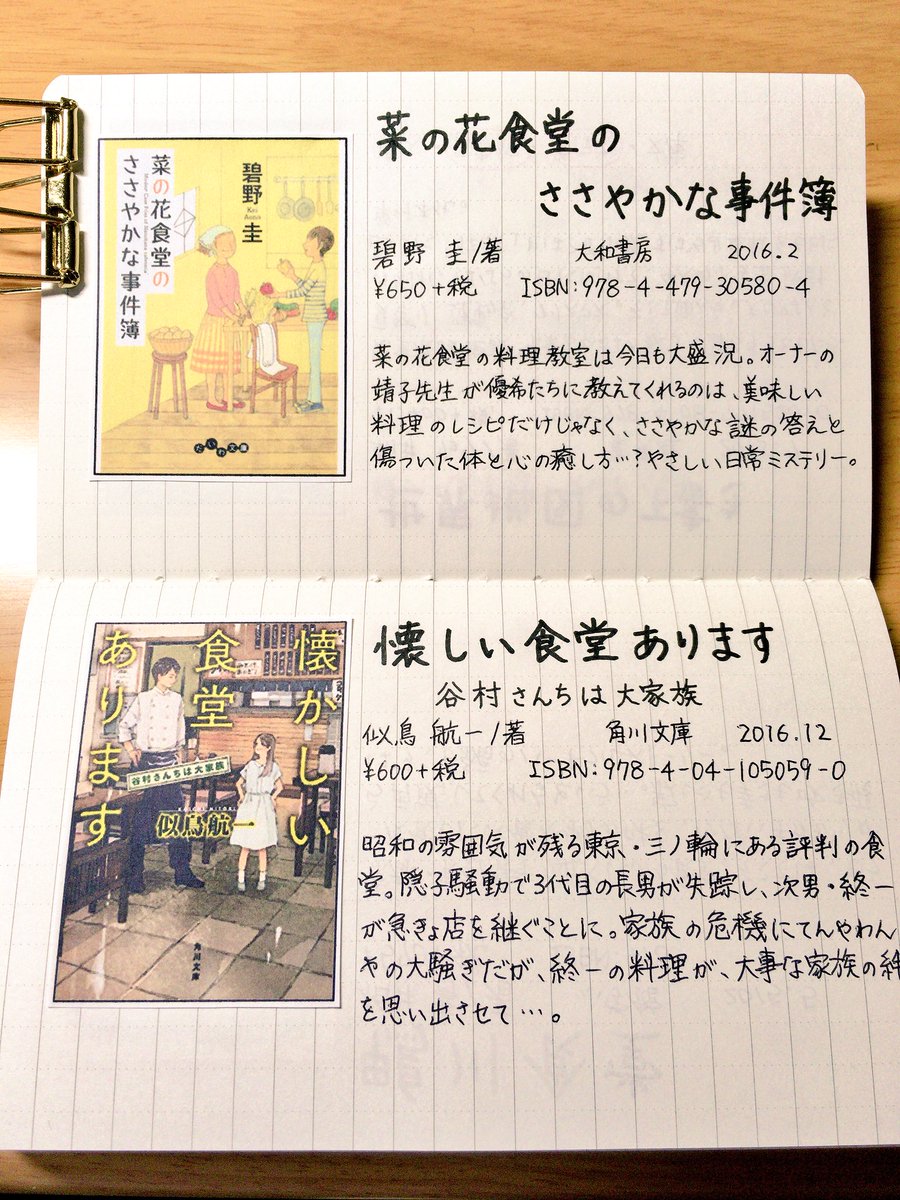 菜の花食堂の
ささやかな事件簿
碧野
圭
だいわ文庫
菜の花食堂の
ささやかな事件簿
碧野 圭/著 大和書房 2016.2
¥650+税 ISBN:978-4-479-30580-4
菜の花食堂の料理教室は今日も大盛況。オーナーの
靖子先生が優希たちに教えてくれるのは、美味しい
料理のレシピだけじゃなく、ささやかな謎の答えと
傷ついた体と心の癒し方…?やさしい日常ミステリー。
懐かしい
食堂
あります
谷村さんちは大家族
似鳥航一
角川文庫
懐しい食堂あります
谷村さんちは大家族
似鳥 航一/著 角川文庫 2016.12
¥600+税 ISBN:978-4-04-105059-0
昭和の雰囲気が残る東京・三ノ輪にある評判の食
堂。隠子騒動で3代目の長男が失踪し、次男・終一
が急きょ店を継ぐことに。家族の危機にてんやわん
やの大騒ぎだが、終一の料理が、大事な家族の絆
を思い出させて…。